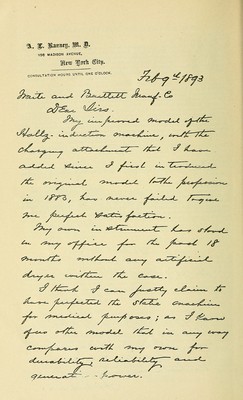 A. L. Ranney, M. D.
156 MADISON AVENUE,
New York City.
CONSULTATION HOURS UNTIL ONE O'CLOCK.
Feb 9th 1893
Waite and Bartlett Manf. Co
Dear Sirs.
My improved model of the
Holtz-induction machine, with the
charging attachment that I have
added since I first introduced
the original model to the profession
in 1883, has never failed to give
me perfect satisfaction.
My own instrument has stood
in my office for the past 18
months without any artificial
dryer within the case.
I think I can justly claim to
have perfected the static machine
for medical purposes; as I know
of no other model that in any way
compares with my own for
durability, reliability, and
generating power.